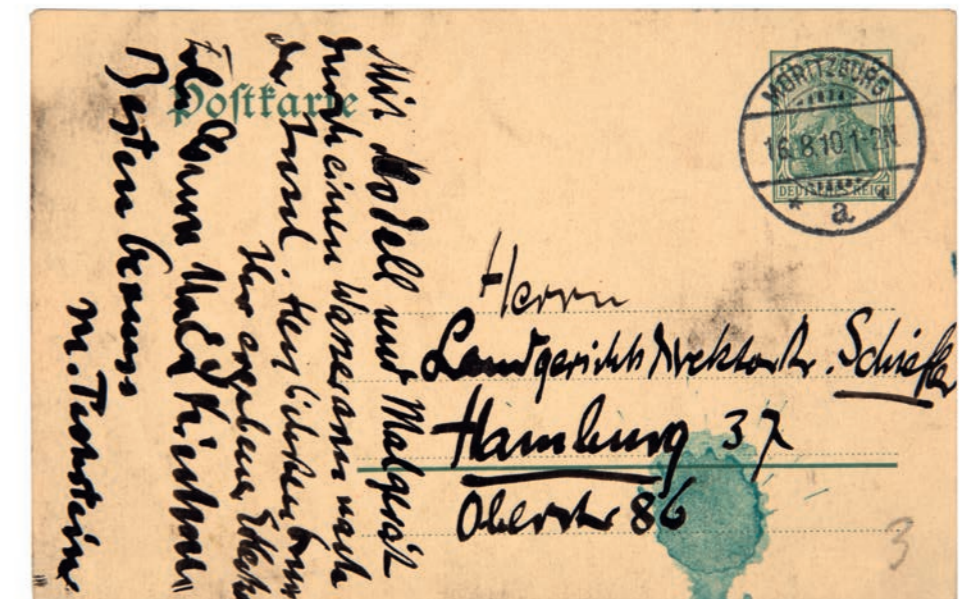 Postkarte
MORITZBURG
16.8.10.1-2N.
* a *
DEUTSCHES REICH
Herrn
Landgerichtsdirektor Dr. Schiefler
Hamburg 37
Oberstr 86
3
Mit Modell und Malgerät
durch einen Wasserarm nach
der Insel. Herzlichsten Gruss
Ihr ergebener EHeckel
Gruss Kirchner
Besten Gruss
M. Pechstein